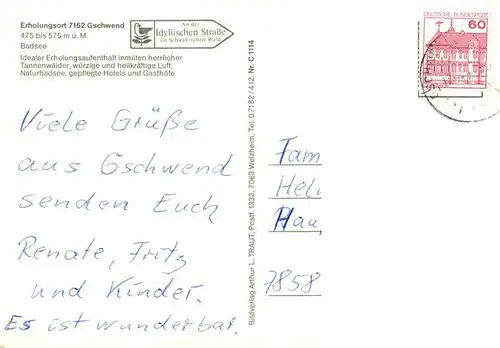 Erholungsort 7162 Gschwend
475 bis 575 m ü. M.
Badsee
Idealer Erholungsaufenthalt inmitten herrlicher
Tannenwälder, würzige und heilkräftige Luft,
Naturbadsee, gepflegte Hotels und Gasthöfe
An der
Idyllischen Straße
im Schwäbischen Wald
Viele Grüße
aus Gschwend
senden Euch
Renate, Fritz
und Kinder.
Es ist wunderbar.
Bildverlag Arthur L. TRAUT, Postf. 1332, 7063 Welzheim, Tel. 0 71 82 / 4 12, Nr. C 1114
DEUTSCHE BUNDESPOST
60
Fam
Hel
Hau
7858